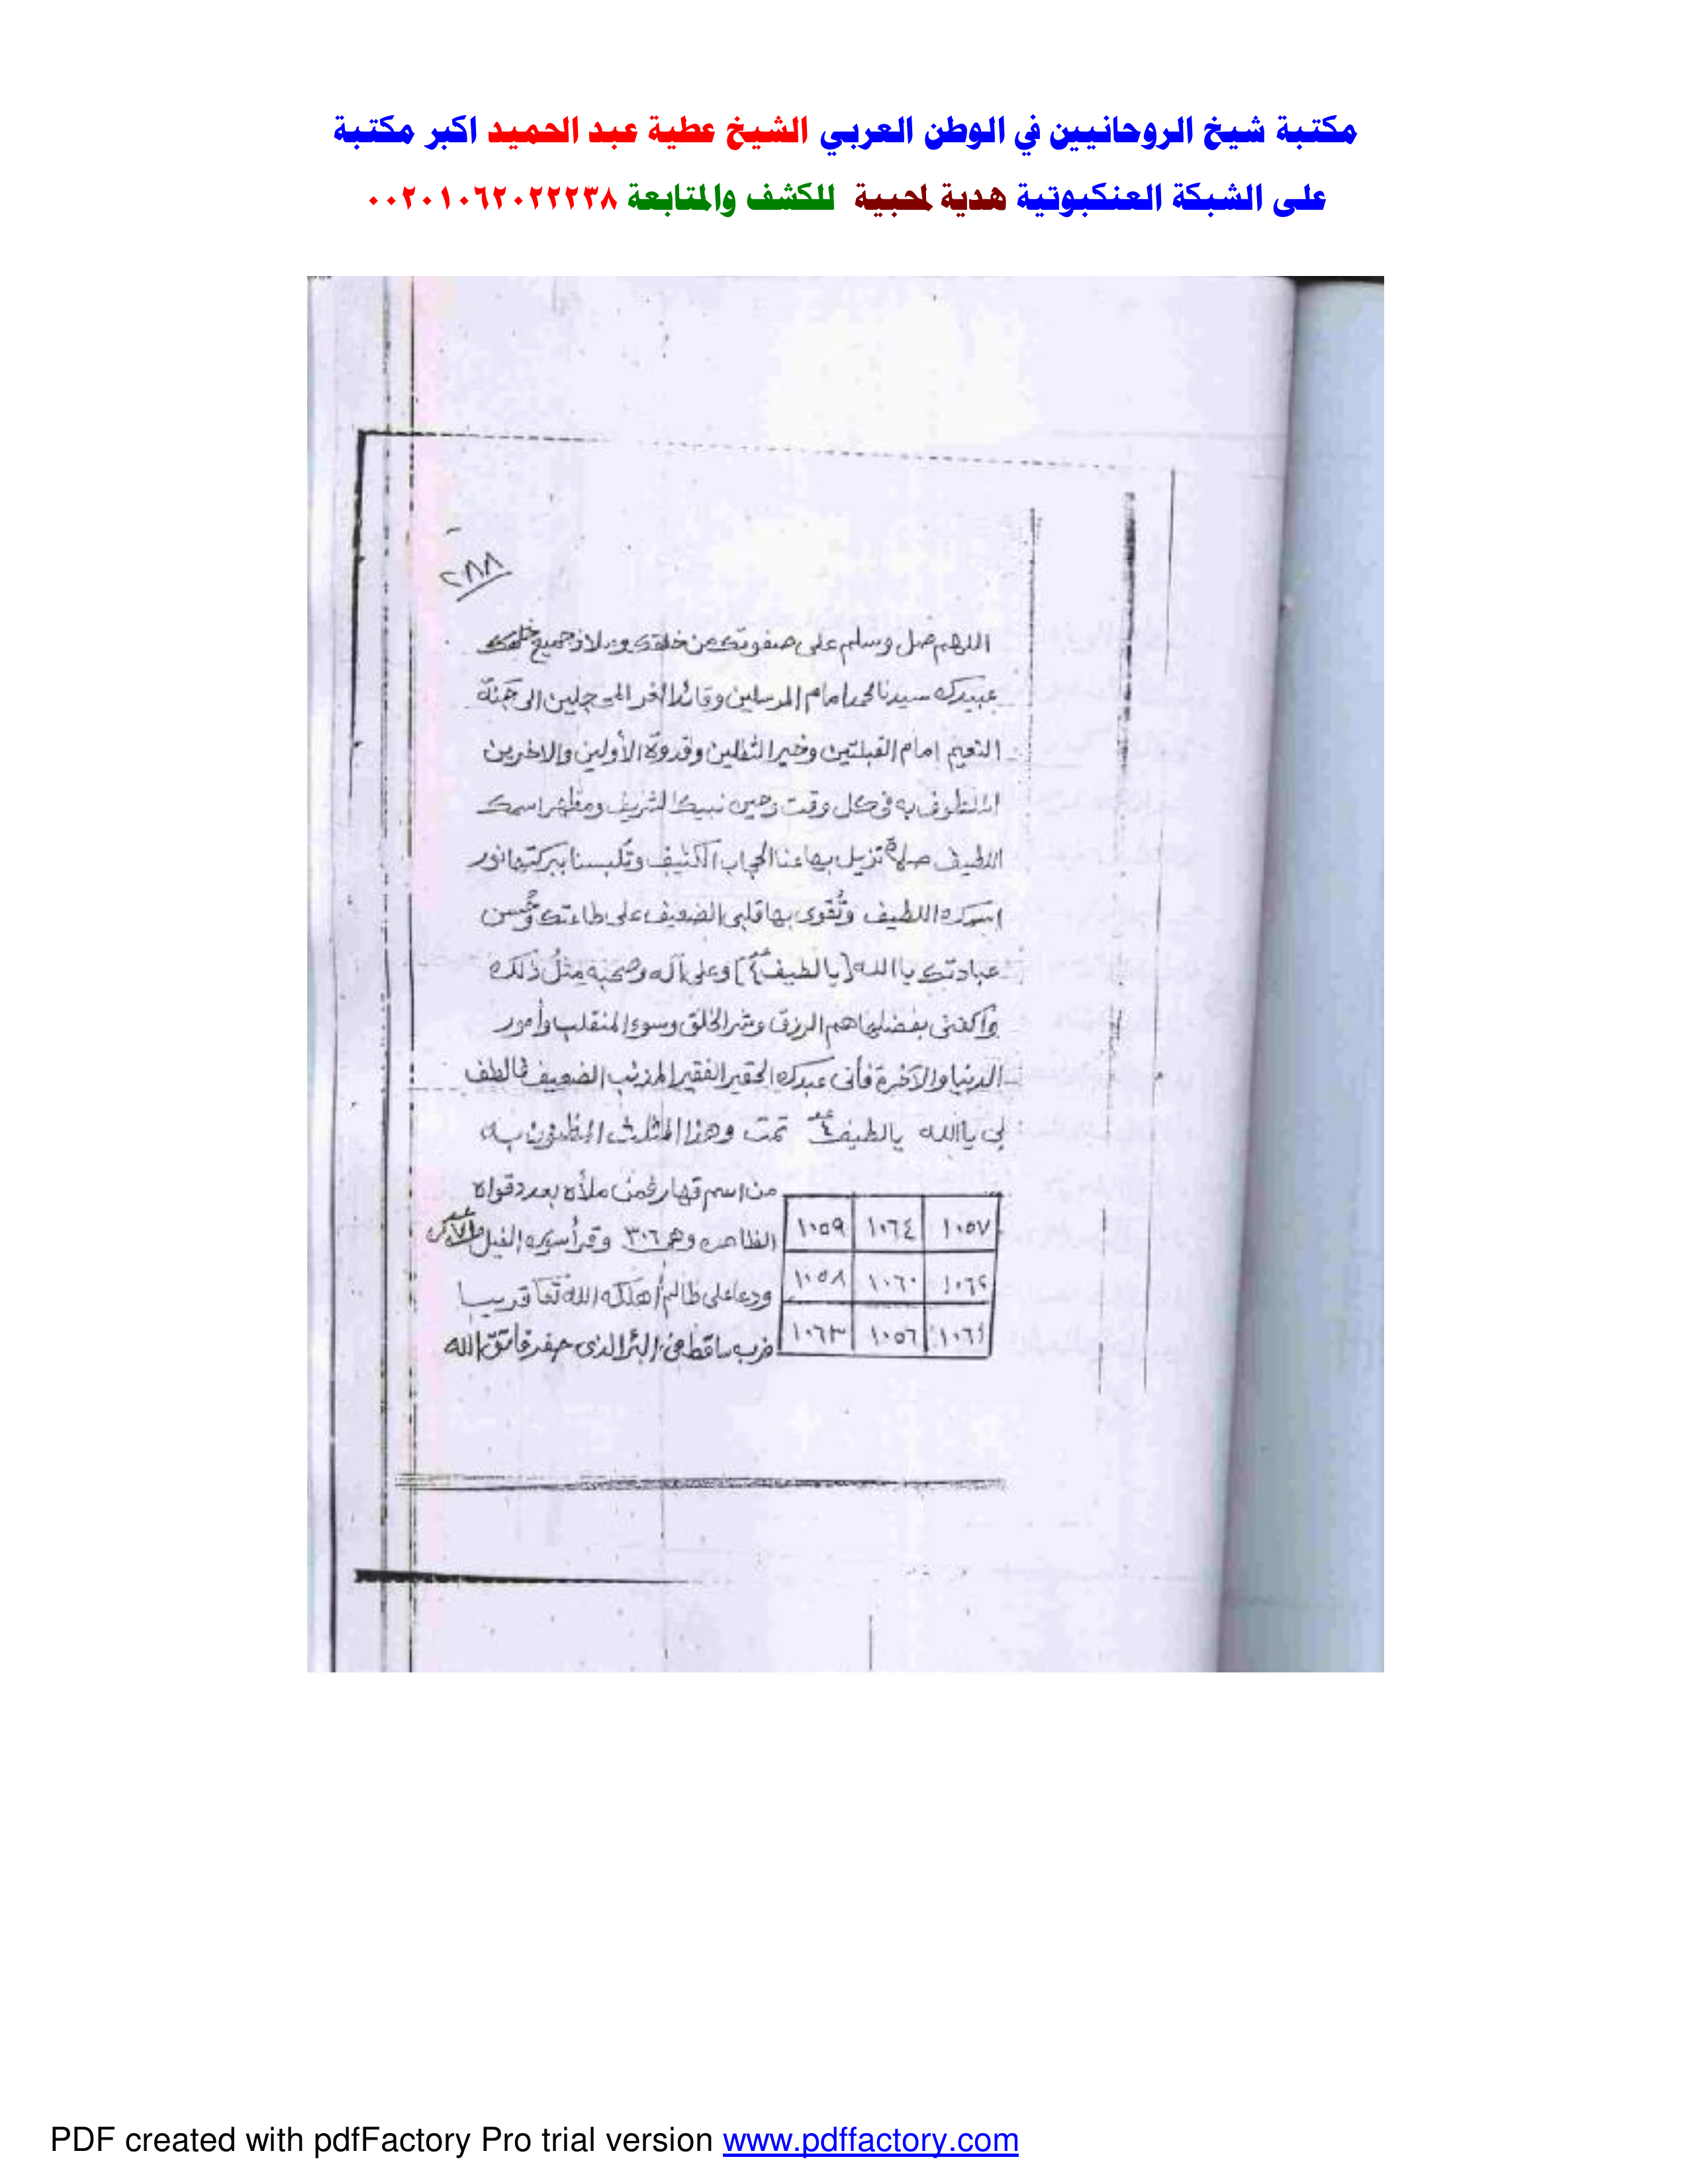 مكتبة شيخ الروحانيين في الوطن العربي الشيخ عطية عبد الحميد اكبر مكتبة
على الشبكة العنكبوتية هدية لمحبية للكشف والمتابعة ٠٠٢٠١٠٦٢٠٢٢٢٣٨
٢٨٨
اللهم صل وسلم على صفوتك من خلقك وملاذ جميع خلقك
عبيدك سيدنا محمد امام المرسلين وقائد الغر المحجلين الى جنة
النعيم امام القبلتين وخير الثقلين وقدوة الأولين والاخرين
الملطوف به في كل وقت وحين نبيك الشريف ومظهر اسمك
اللطيف صلاة تزيل بها عنا الحجاب الكثيف وتلبسنا ببركتها نور
اسمك اللطيف وتقوى بها قلبى الضعيف على طاعتك وحُسن
عبادتك يا الله (يالطيف ٤) وعلى آله وصحبه مِثلُ ذلك
وأكفنى بفضلها هم الرزق وشر الخلق وسوء المنقلب وأمور
الدنيا والآخرة فأنى عبدك الحقير الفقير المذنب الضعيف فالطف
لى يا الله يالطيف ٤ تمت وهذا المثلث المظنون به
من اسم قهار فمن ملأه بعدد قواه
الظاهره وهى ٣٠٦ وقرأ سورة الفيل
ودعا على ظالم أهلكه الله تعا قريبا
فرب ساقط فى البئر الذى حفر فاتق الله
١٠٥٧ ١٠٦٤ ١٠٥٩
١٠٦٢ ١٠٦٠ ١٠٥٨
١٠٦١ ١٠٥٦ ١٠٦٣
PDF created with pdfFactory Pro trial version www.pdffactory.com